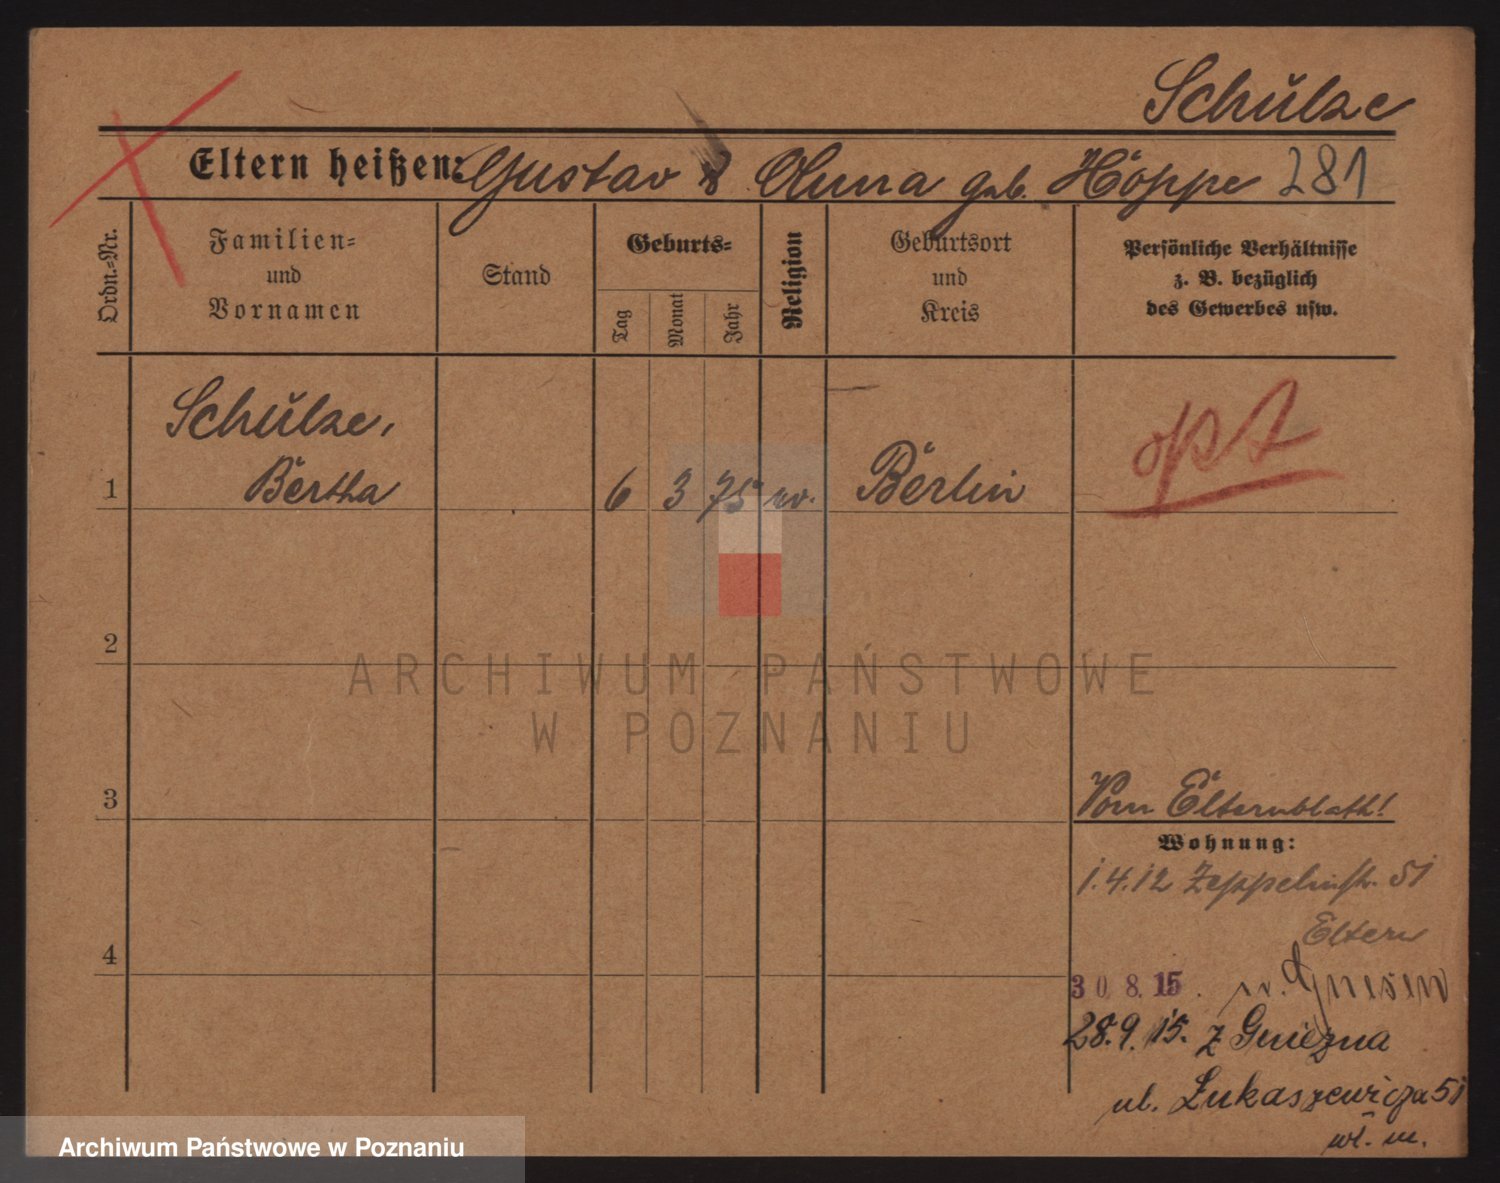 Schulze
Eltern heißen: Gustav & Anna geb. Höppe 281
Ordn.-Nr.
Familien-
und
Vornamen
Stand
Geburts-
Tag
Monat
Jahr
Religion
Geburtsort
und
Kreis
Persönliche Verhältnisse
z. B. bezüglich
des Gewerbes usw.
Schulze,
1 Bertha 6 3 75 ev. Berlin
opt
2
ARCHIWUM PAŃSTWOWE
W POZNANIU
3
Vom Elternblatt!
Wohnung:
1.4.12 Zeppelinstr. 51
Eltern
4
30.8.15. n. Gnesen
28.9.15. z Gniezna
ul. Łukaszewicza 51
wł. m.
Archiwum Państwowe w Poznaniu